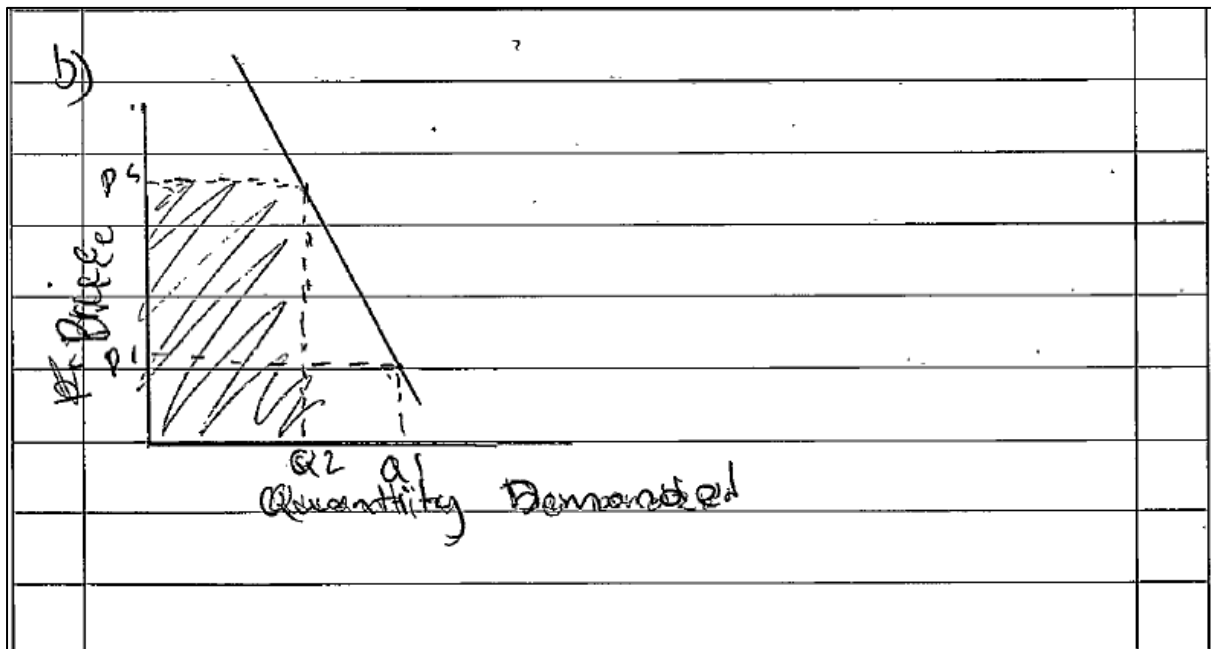 b)
P5
Price
P1
Q2 Q1
Quantity Demanded